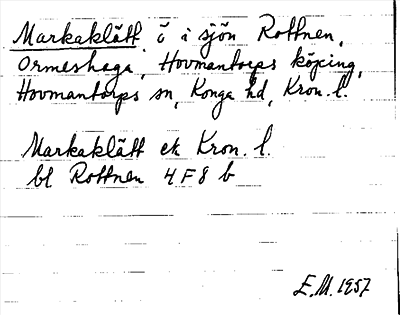 Markaklätt, ö i sjön Rottnen,
Ormeshaga, Hovmantorps köping,
Hovmantorps sn, Konga hd, Kron. l.
Markaklätt ek Kron. l.
bl Rottnen 4 F 8 b
E.M. 1957